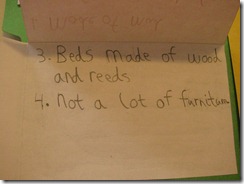 3. Beds made of wood
and reeds
4. Not a lot of furniture